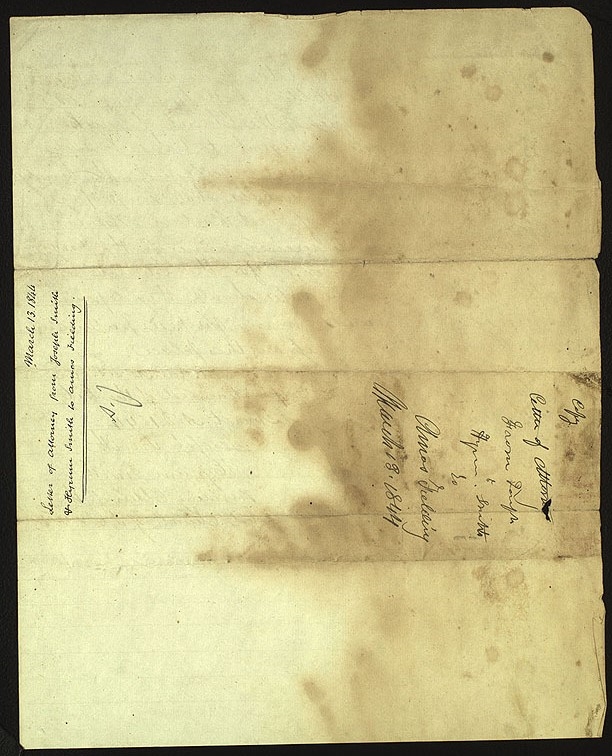 Copy
Letter of Attorn
From Joseph
& Smith
to
Amos Fielding
March 13. 1844
March 13. 1844
Letter of Attorney from Joseph Smith
& Hyrum Smith to Amos Fielding.